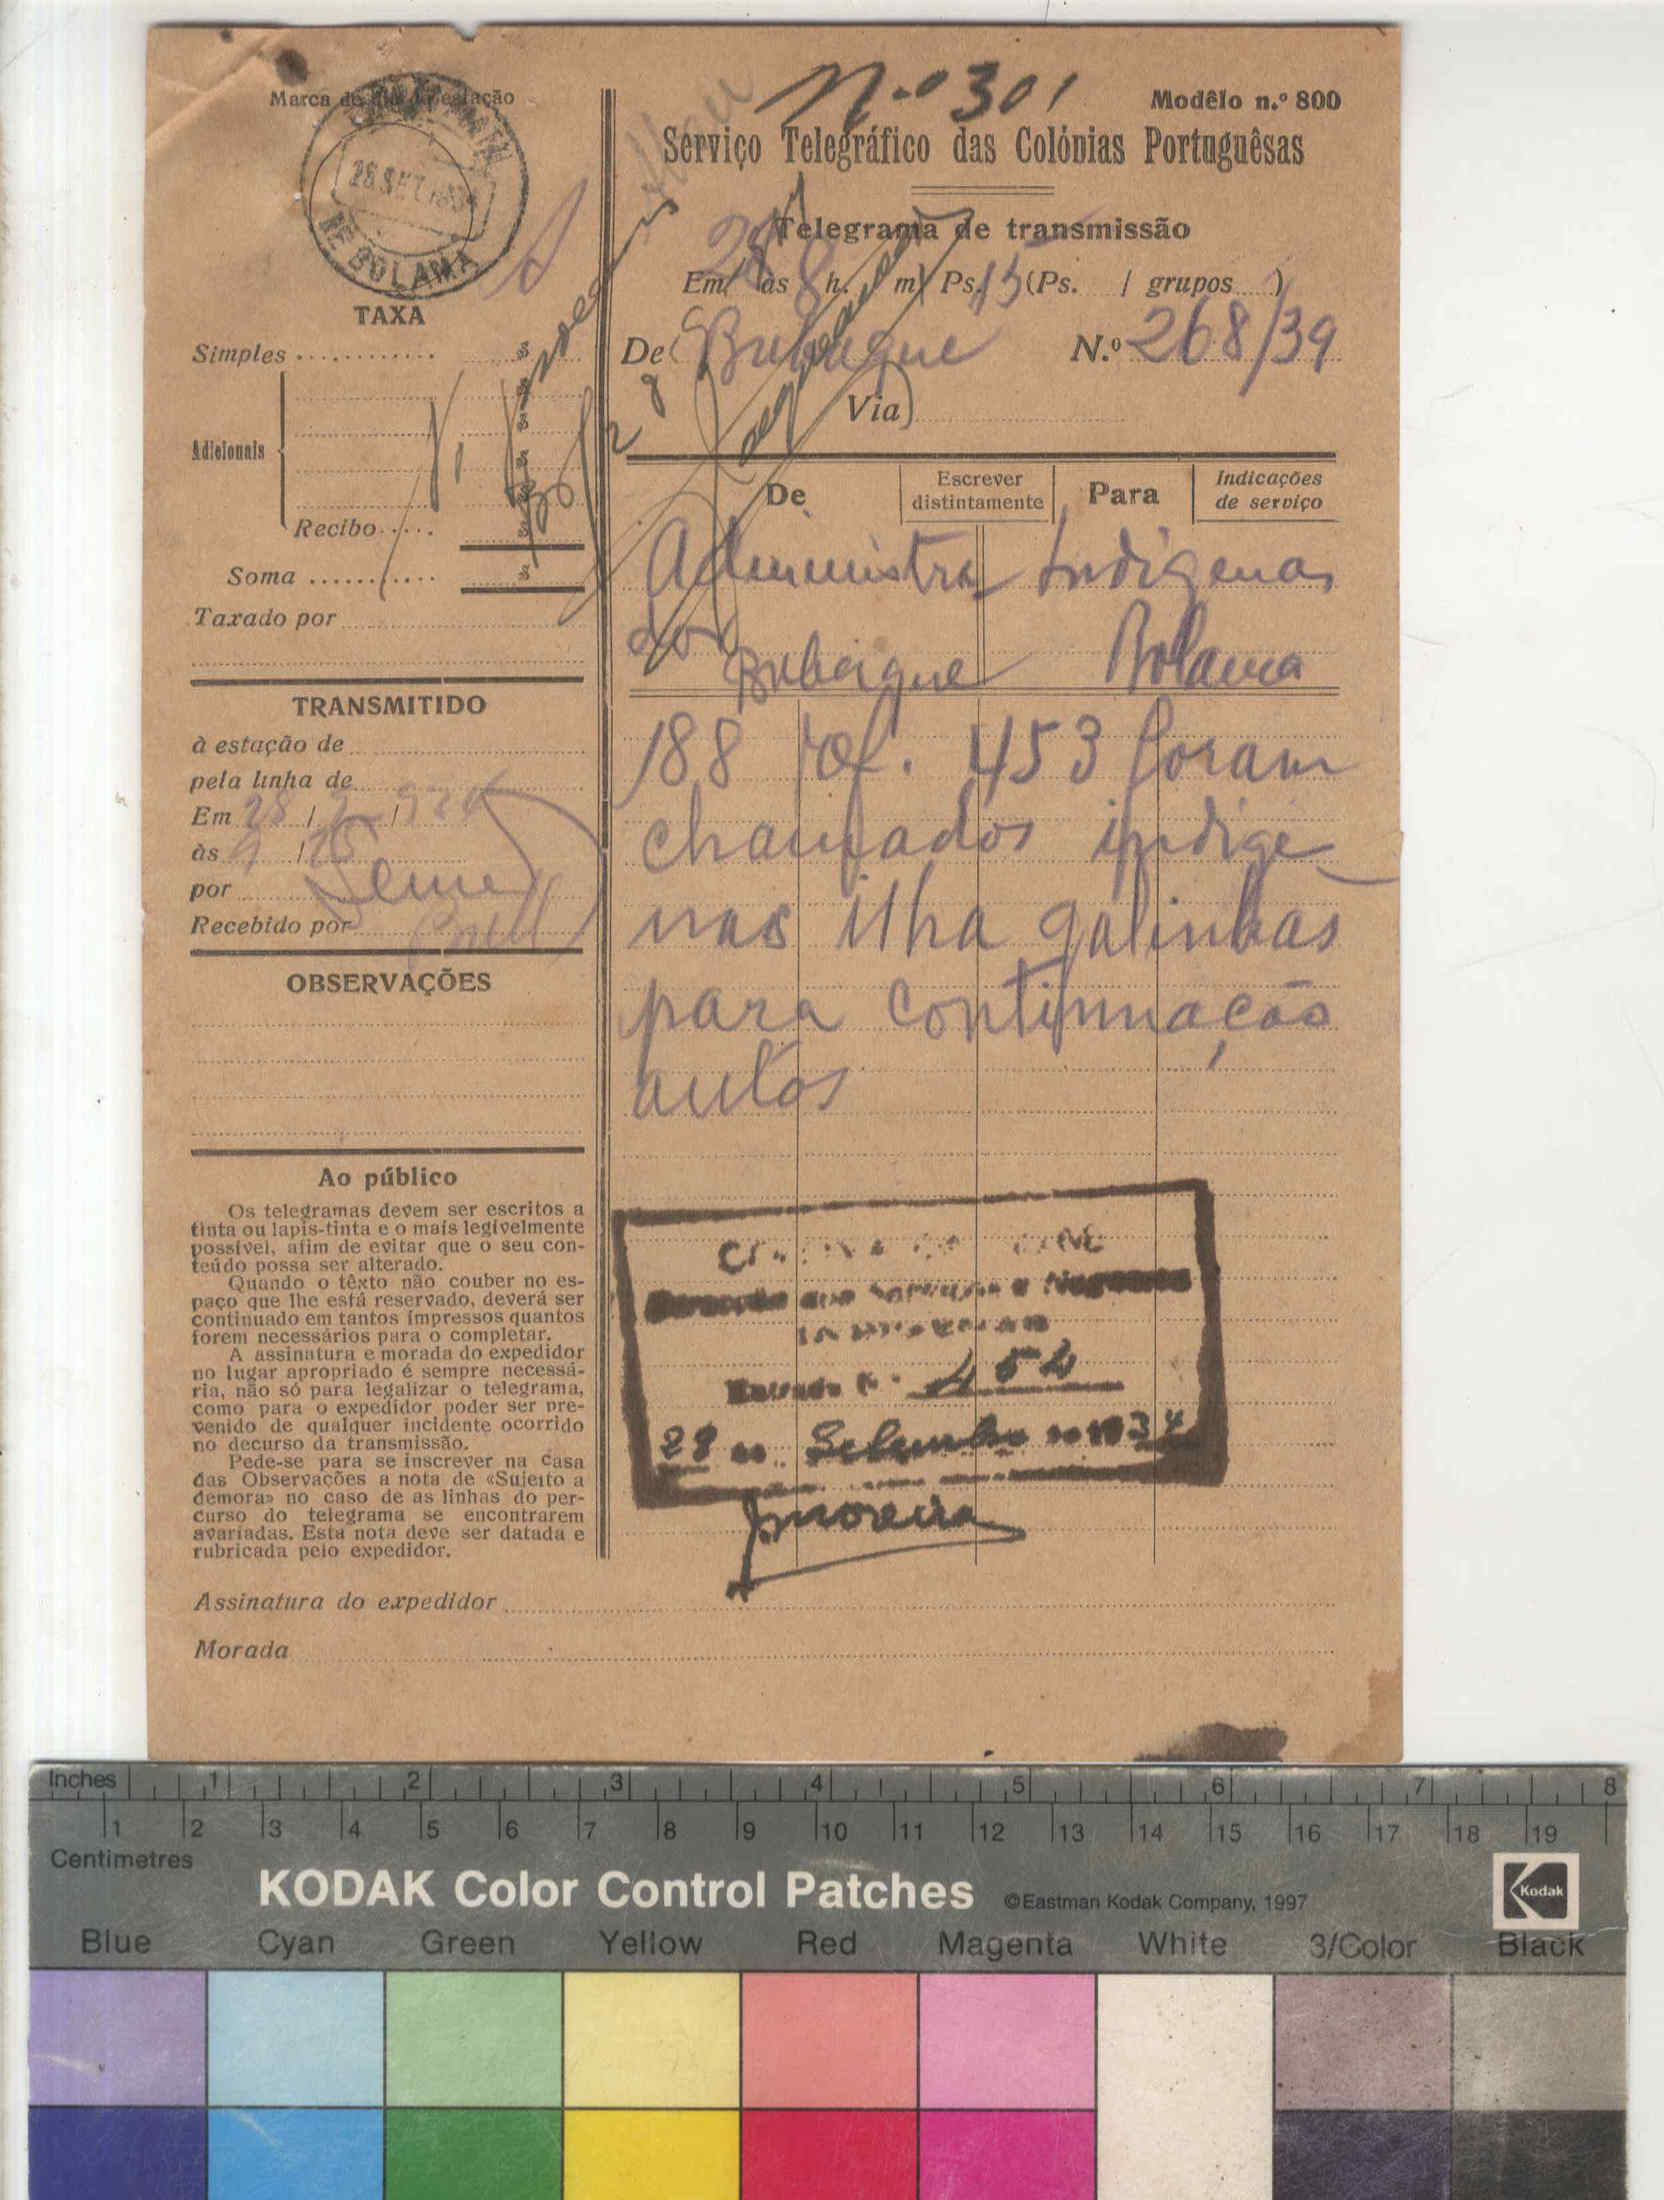 N.º 301
Modêlo n.º 800
Serviço Telegráfico das Colónias Portuguêsas
Telegrama de transmissão
Em 28 às 8 h. m) Ps. 15 (Ps. / grupos )
De Bubaque N.º 268/39
Via)
De
Escrever
distintamente
Para
Indicações
de serviço
Administra Indigenas
dor
Bubaque Bolama
188 Of. 453 foram
chamados indige
nas ilha galinhas
para continuação
autos
Entrada N.º 454
28 de Setembro de 1934
JMoreira
Marca do dia da estação
28 SET 1934
DE BOLAMA
TAXA
Simples
Adicionais
Recibo
Soma
Taxado por
TRANSMITIDO
à estação de
pela linha de
Em 28 / /
às 9 / 15
por
Recebido por
OBSERVAÇÕES
Ao público
Os telegramas devem ser escritos a
tinta ou lapis-tinta e o mais legivelmente
possível, afim de evitar que o seu con-
teúdo possa ser alterado.
Quando o têxto não couber no es-
paço que lhe está reservado, deverá ser
continuado em tantos impressos quantos
forem necessários para o completar.
A assinatura e morada do expedidor
no lugar apropriado é sempre necessá-
ria, não só para legalizar o telegrama,
como para o expedidor poder ser pre-
venido de qualquer incidente ocorrido
no decurso da transmissão.
Pede-se para se inscrever na Casa
das Observações a nota de «Sujeito a
demora» no caso de as linhas do per-
curso do telegrama se encontrarem
avariadas. Esta nota deve ser datada e
rubricada pelo expedidor.
Assinatura do expedidor
Morada
Inches 1 2 3 4 5 6 7 8
1 2 3 4 5 6 7 8 9 10 11 12 13 14 15 16 17 18 19
Centimetres
KODAK Color Control Patches ©Eastman Kodak Company, 1997
Kodak
Blue Cyan Green Yellow Red Magenta White 3/Color Black